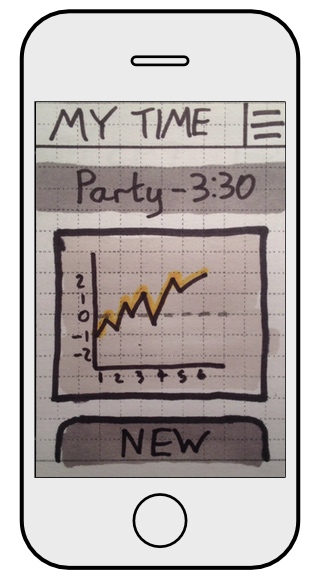 MY TIME
Party - 3:30
2
1
0
-1
-2
1 2 3 4 5 6
NEW